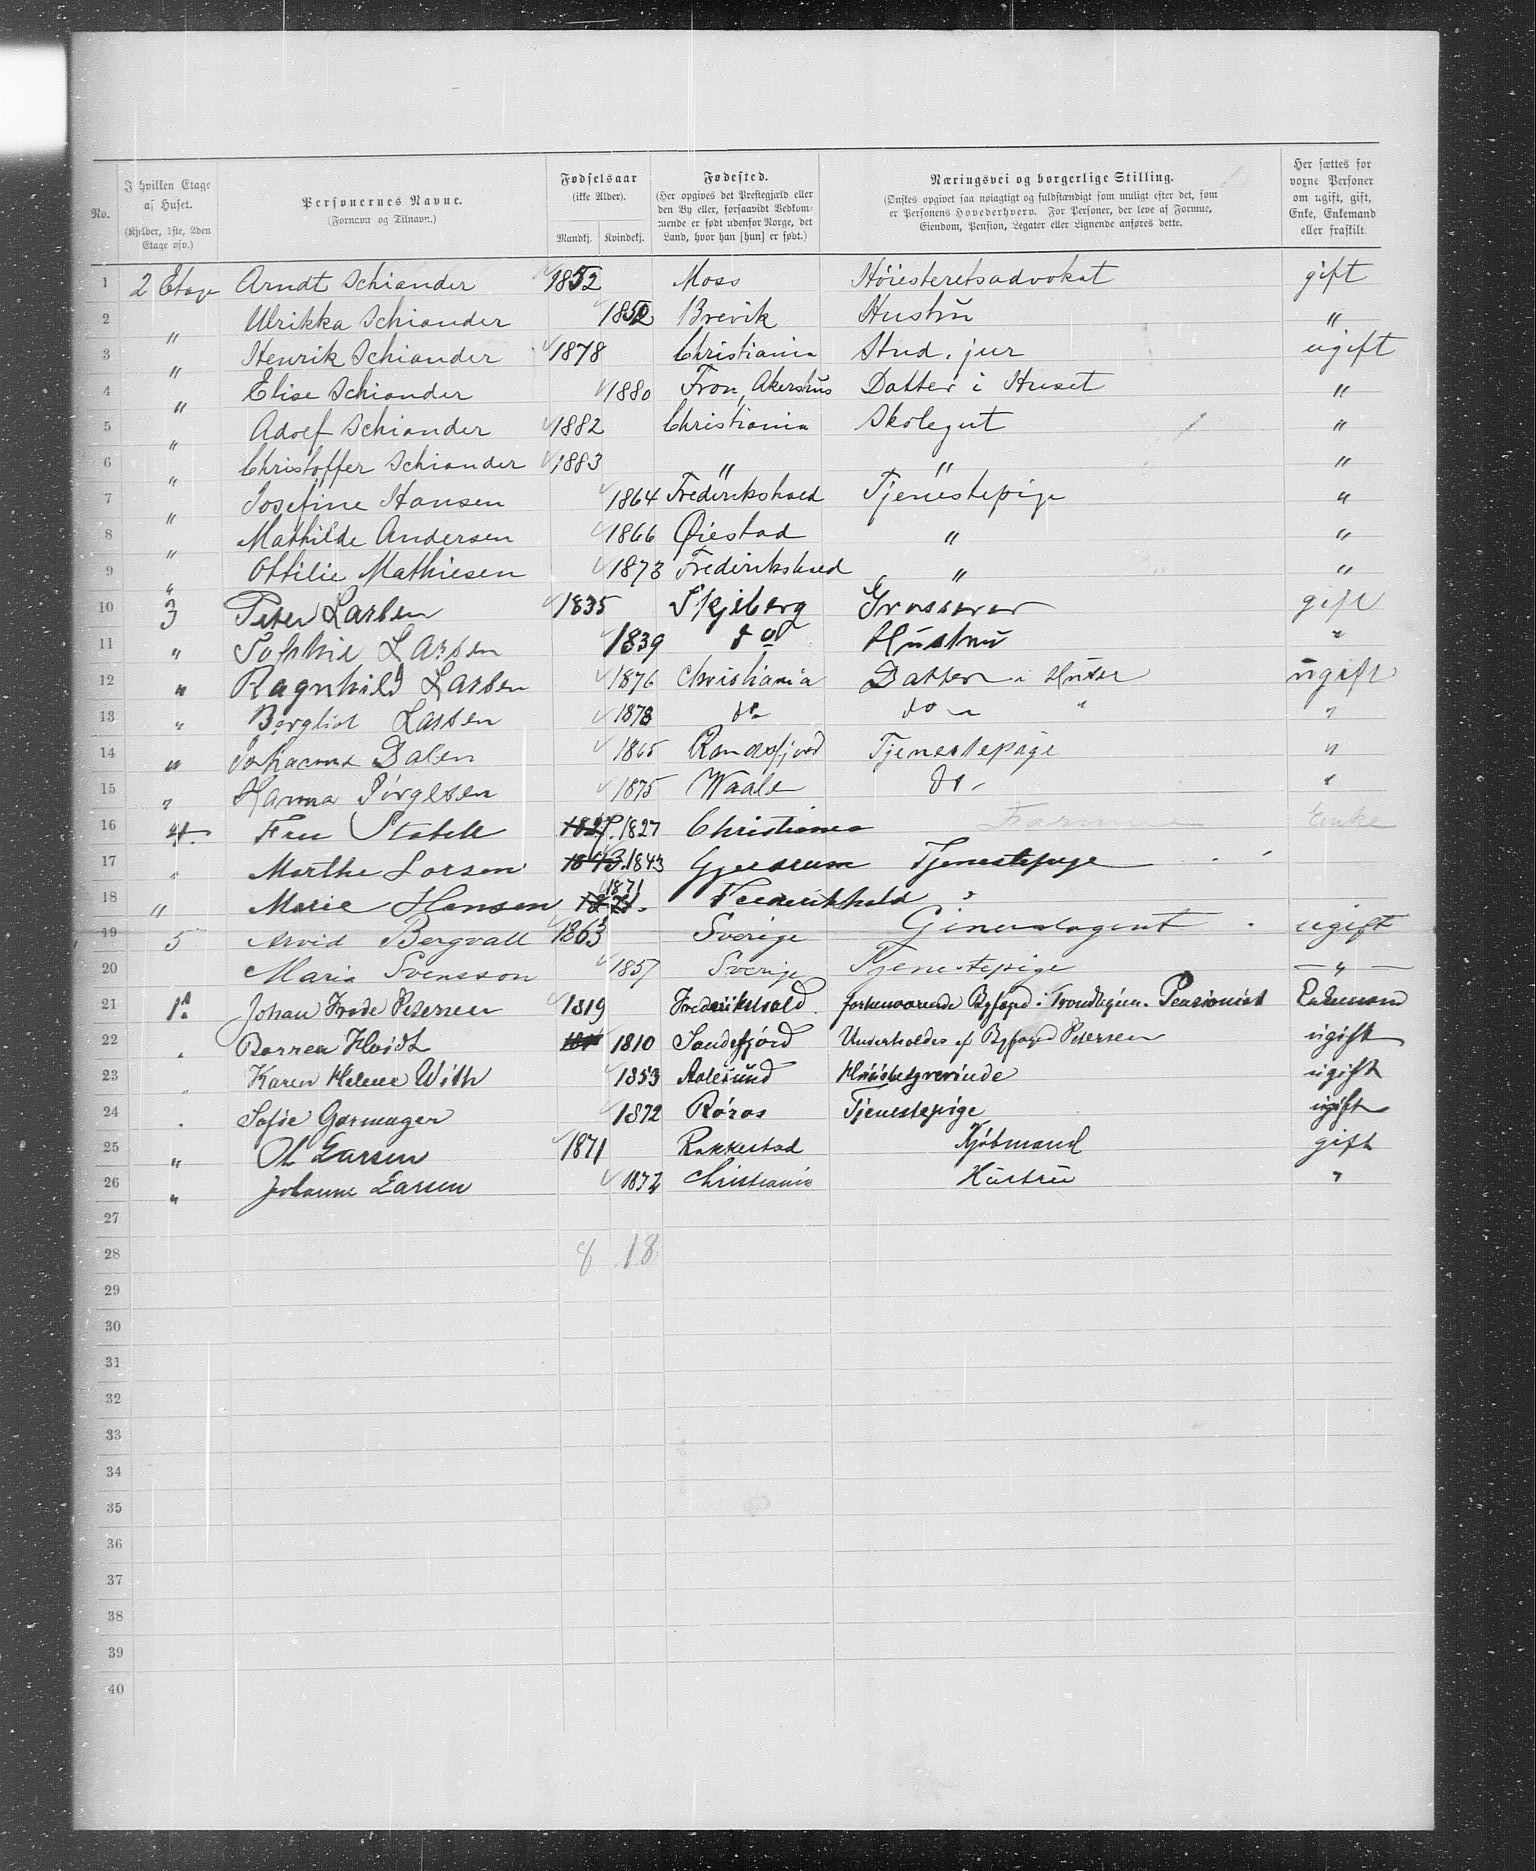 No. | I hvilken Etage af Huset. (Kjelder, 1ste, 2den Etage osv.) | Personernes Navne. (Fornavn og Tilnavn.) | Fødselsaar (ikke Alder). Mandkj. Kvindekj. | Fødested. (Her opgives det Prestegjæld eller den By eller, forsaavidt Vedkommende er født udenfor Norge, det Land, hvor han [hun] er født.) | Næringsvei og borgerlige Stilling. (Ønskes opgivet saa nøiagtigt og fuldstændigt som muligt efter det, som er Personens Hovederhverv. For Personer, der leve af Formue, Eiendom, Pension, Legater eller Lignende anføres dette.) | Her sættes for voxne Personer om ugift, gift, Enke, Enkemand eller fraskilt
1 2 Etage Arndt Schiander 1852 Moss Höiesteretsadvokat gift
2 " Ulrikka Schiander 1852 Brevik Hustru "
3 " Henrik Schiander 1878 Christiania Stud. jur ugift
4 " Elise Schiander 1880 Fron, Akershus Datter i Huset "
5 " Adolf Schiander 1882 Christiania Skolegut "
6 " Christoffer Schiander 1883 " " "
7 " Josefine Hansen 1864 Frederikshald Tjenestepige "
8 " Mathilde Andersen 1866 Øiestad " "
9 " Ottilie Mathiesen 1873 Frederikshald " "
10 3 Peter Larsen 1835 Skjeberg Grosserer gift
11 " Sophie Larsen 1839 do Hustru "
12 " Ragnhild Larsen 1876 Christiania Datter i Huset ugift
13 " Borghild Larsen 1878 do do " "
14 " Johanna Dalen 1865 Randsfjord Tjenestepige "
15 " Hanna Jörgesen 1875 Waale do "
16 4. Fru Stabell 1827 1827 Christiania Formue Enke
17 " Marthe Larsen 1843 1843 Gjerdrum Tjenestepige
18 " Marie Hansen 1871 1871 Frederikhald "
19 5 Arvid Bergvall 1863 Sverige Generalagent ugift
20 Maria Svensson 1857 Sverige Tjenestepige — " —
21 1. Johan Frode Petersen 1819 Frederikshald. forhenværende Byfoged i Trondhjem. Pensionist Enkemand
22 " Hvidt 1810 Sandefjord Underholdes af Byfoged Petersen ugift
23 " Karen Helene With 1853 Aalesund Huusbestyrerinde ugift
24 " Sofie Garmager 1872 Röros Tjenestepige ugift
25 " Ol Larsen 1871 Rakkestad Kjöbmand gift
26 " Johanne Larsen 1872 Christiania Hustru "
27
28 8 18
29
30
31
32
33
34
35
36
37
38
39
40